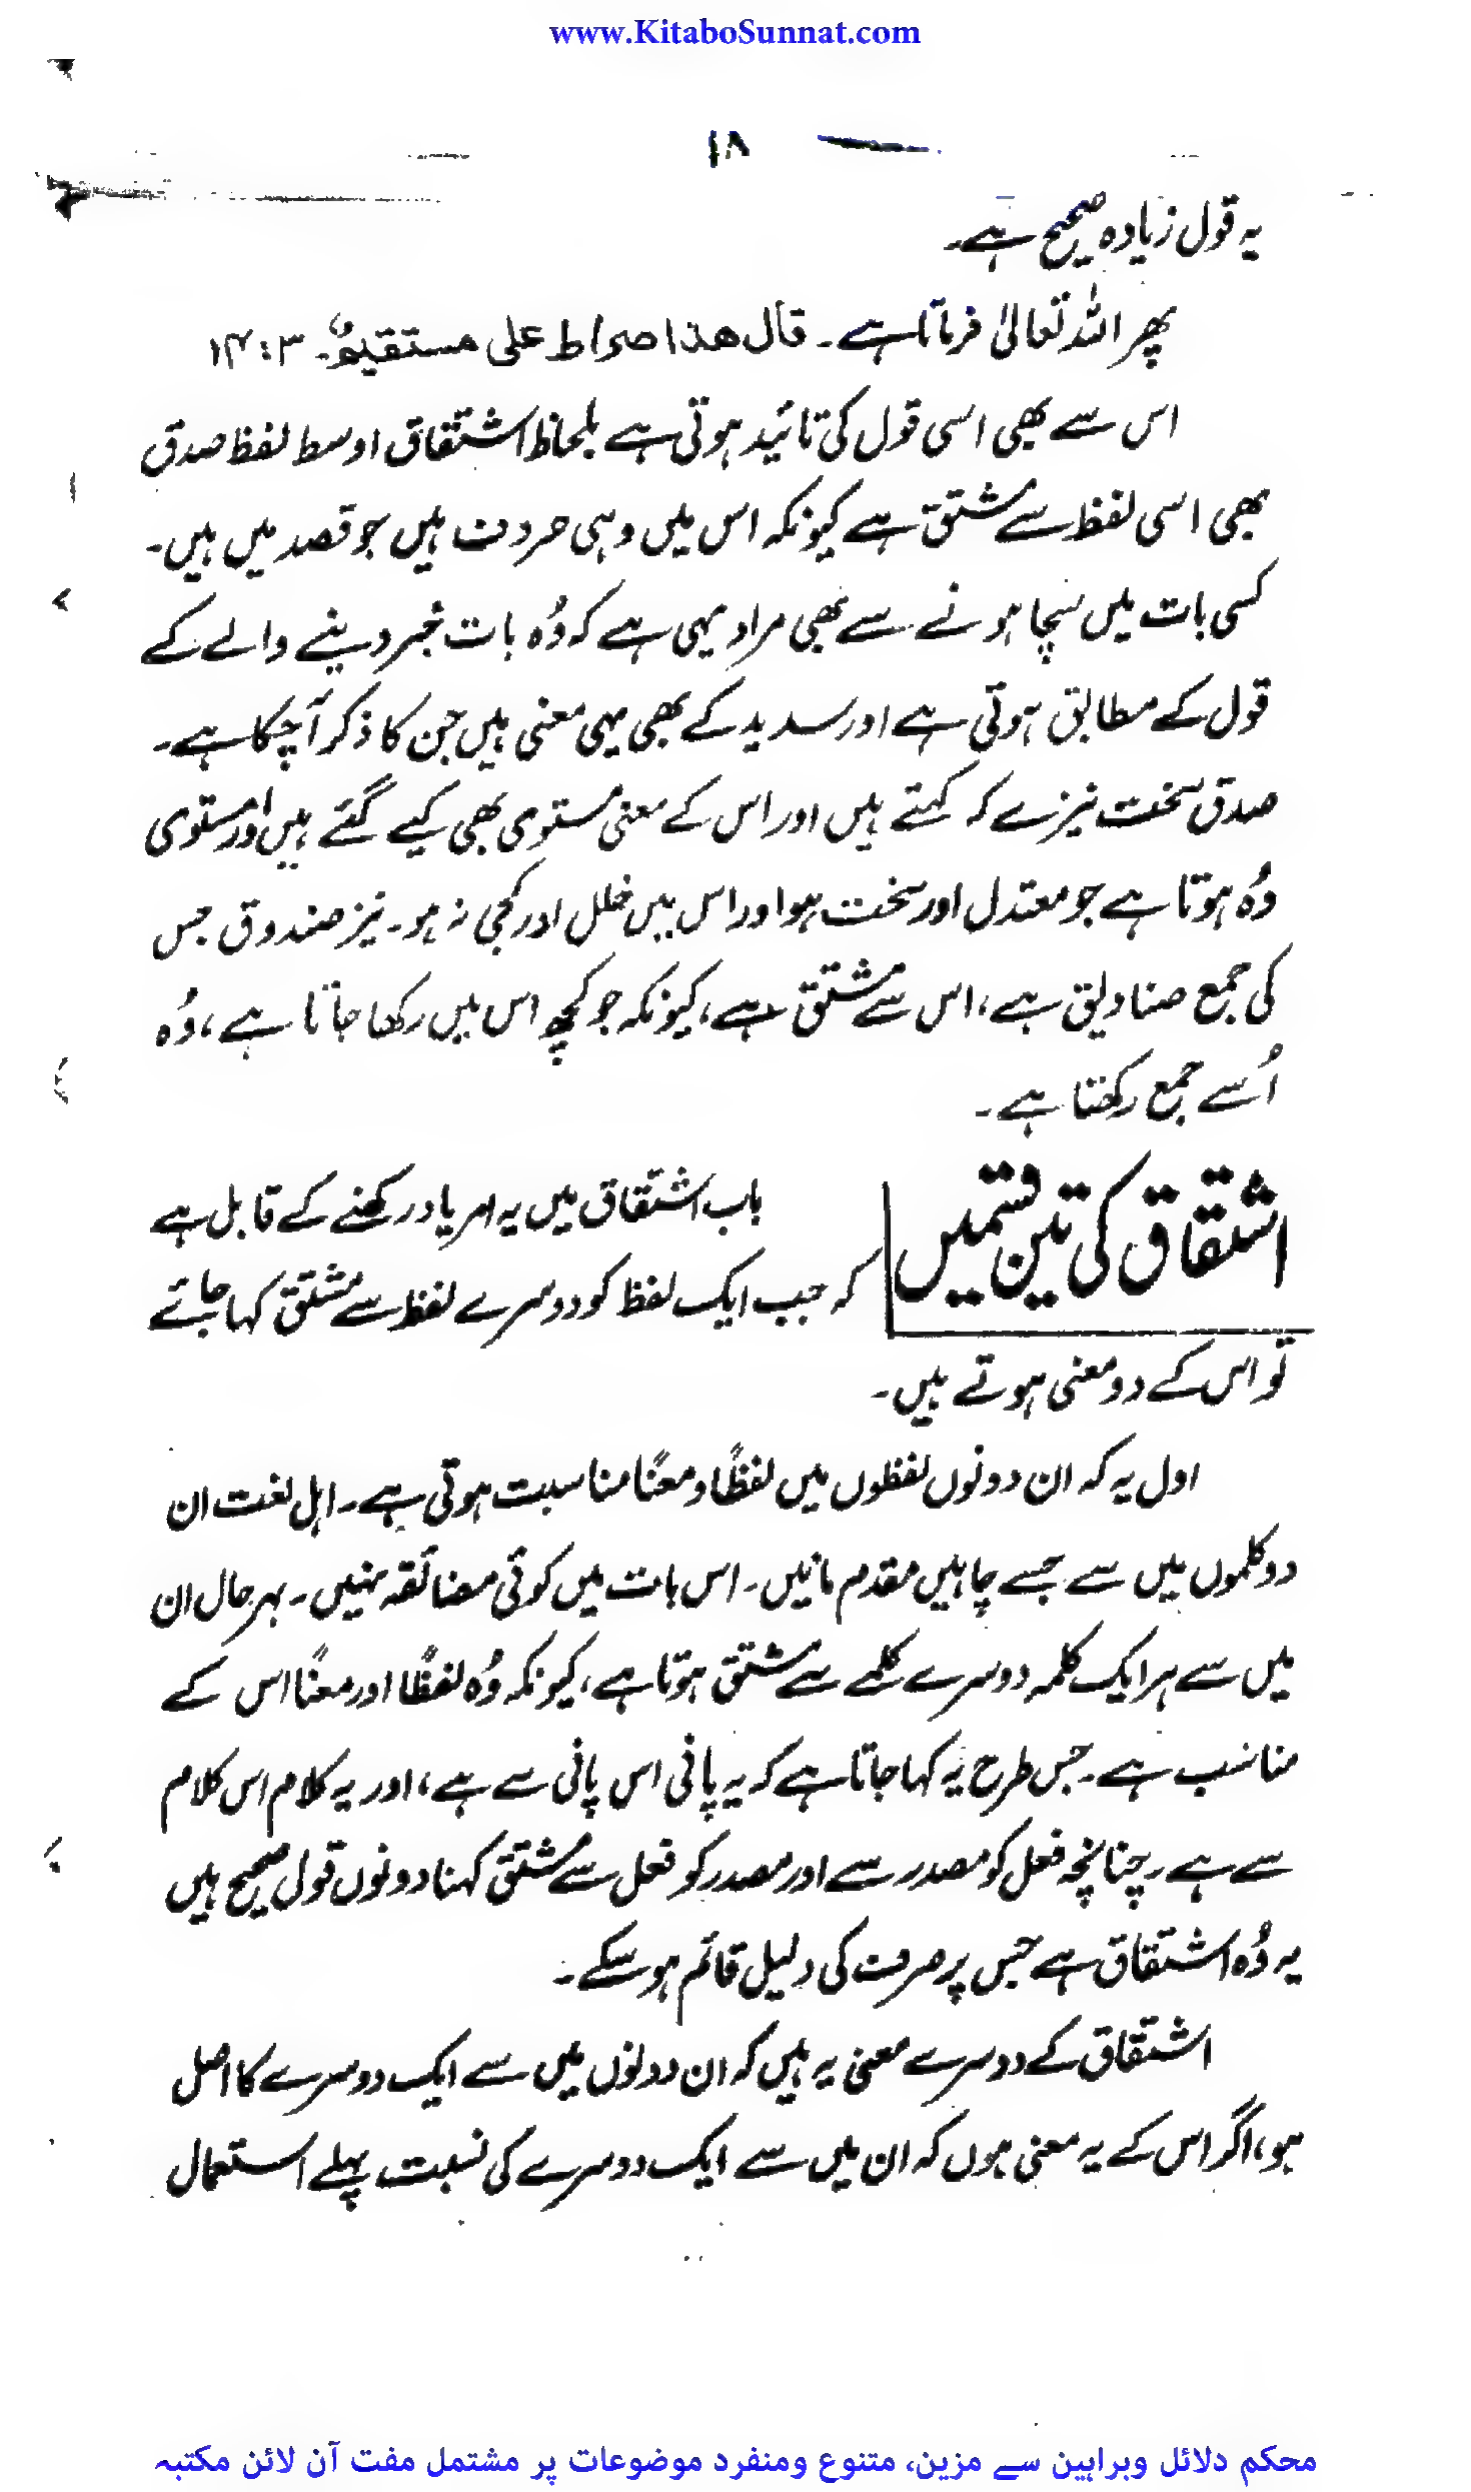 www.KitaboSunnat.com
۱۸
یہ قول زیادہ صحیح ہے۔
پھر اللہ تعالیٰ فرماتا ہے۔ قال ھذا صراط علی مستقیم۔ ۱۴:۳
اس سے بھی اسی قول کی تائید ہوتی ہے بلحاظ اشتقاق اوسط لفظ صدق
بھی اسی لفظ سے مشتق ہے کیونکہ اس میں وہی حروف ہیں جو قصد میں ہیں۔
کسی بات میں سچا ہونے سے بھی مراد یہی ہے کہ وُہ بات خبر دینے والے کے
قول کے مطابق ہوتی ہے اور سدید کے بھی یہی معنی ہیں جن کا ذکر آ چکا ہے۔
صدق سخت نیزے کو کہتے ہیں اور اس کے معنی مستوی بھی کیے گئے ہیں اور مستوی
وُہ ہوتا ہے جو معتدل اور سخت ہو اور اس میں خلل اور کجی نہ ہو۔ نیز صندوق جس
کی جمع صنادیق ہے، اس سے مشتق ہے، کیونکہ جو کچھ اس میں رکھا جاتا ہے، وُہ
اُسے جمع رکھتا ہے۔
اشتقاق کی تین قسمیں
باب اشتقاق میں یہ امر یاد رکھنے کے قابل ہے
کہ جب ایک لفظ کو دوسرے لفظ سے مشتق کہا جائے
تو اس کے دو معنی ہوتے ہیں۔
اول یہ کہ ان دونوں لفظوں میں لفظًا و معنًا مناسبت ہوتی ہے۔ اہل لغت ان
دو کلموں میں سے جسے چاہیں مقدم مانیں۔ اس بات میں کوئی مضائقہ نہیں۔ بہرحال ان
میں سے ہر ایک کلمہ دوسرے کلمے سے مشتق ہوتا ہے، کیونکہ وُہ لفظًا اور معنًا اس کے
مناسب ہے۔ جس طرح یہ کہا جاتا ہے کہ یہ پانی اس پانی سے ہے، اور یہ کلام اس کلام
سے ہے۔ چنانچہ فعل کو مصدر سے اور مصدر کو فعل سے مشتق کہنا دونوں قول صحیح ہیں
یہ وُہ اشتقاق ہے جس پر صرف کی دلیل قائم ہو سکے۔
اشتقاق کے دوسرے معنی یہ ہیں کہ ان دونوں میں سے ایک دوسرے کا اصل
ہو، اگر اس کے یہ معنی ہوں کہ ان میں سے ایک دوسرے کی نسبت پہلے استعمال
محکم دلائل وبراہین سے مزین، متنوع ومنفرد موضوعات پر مشتمل مفت آن لائن مکتبہ